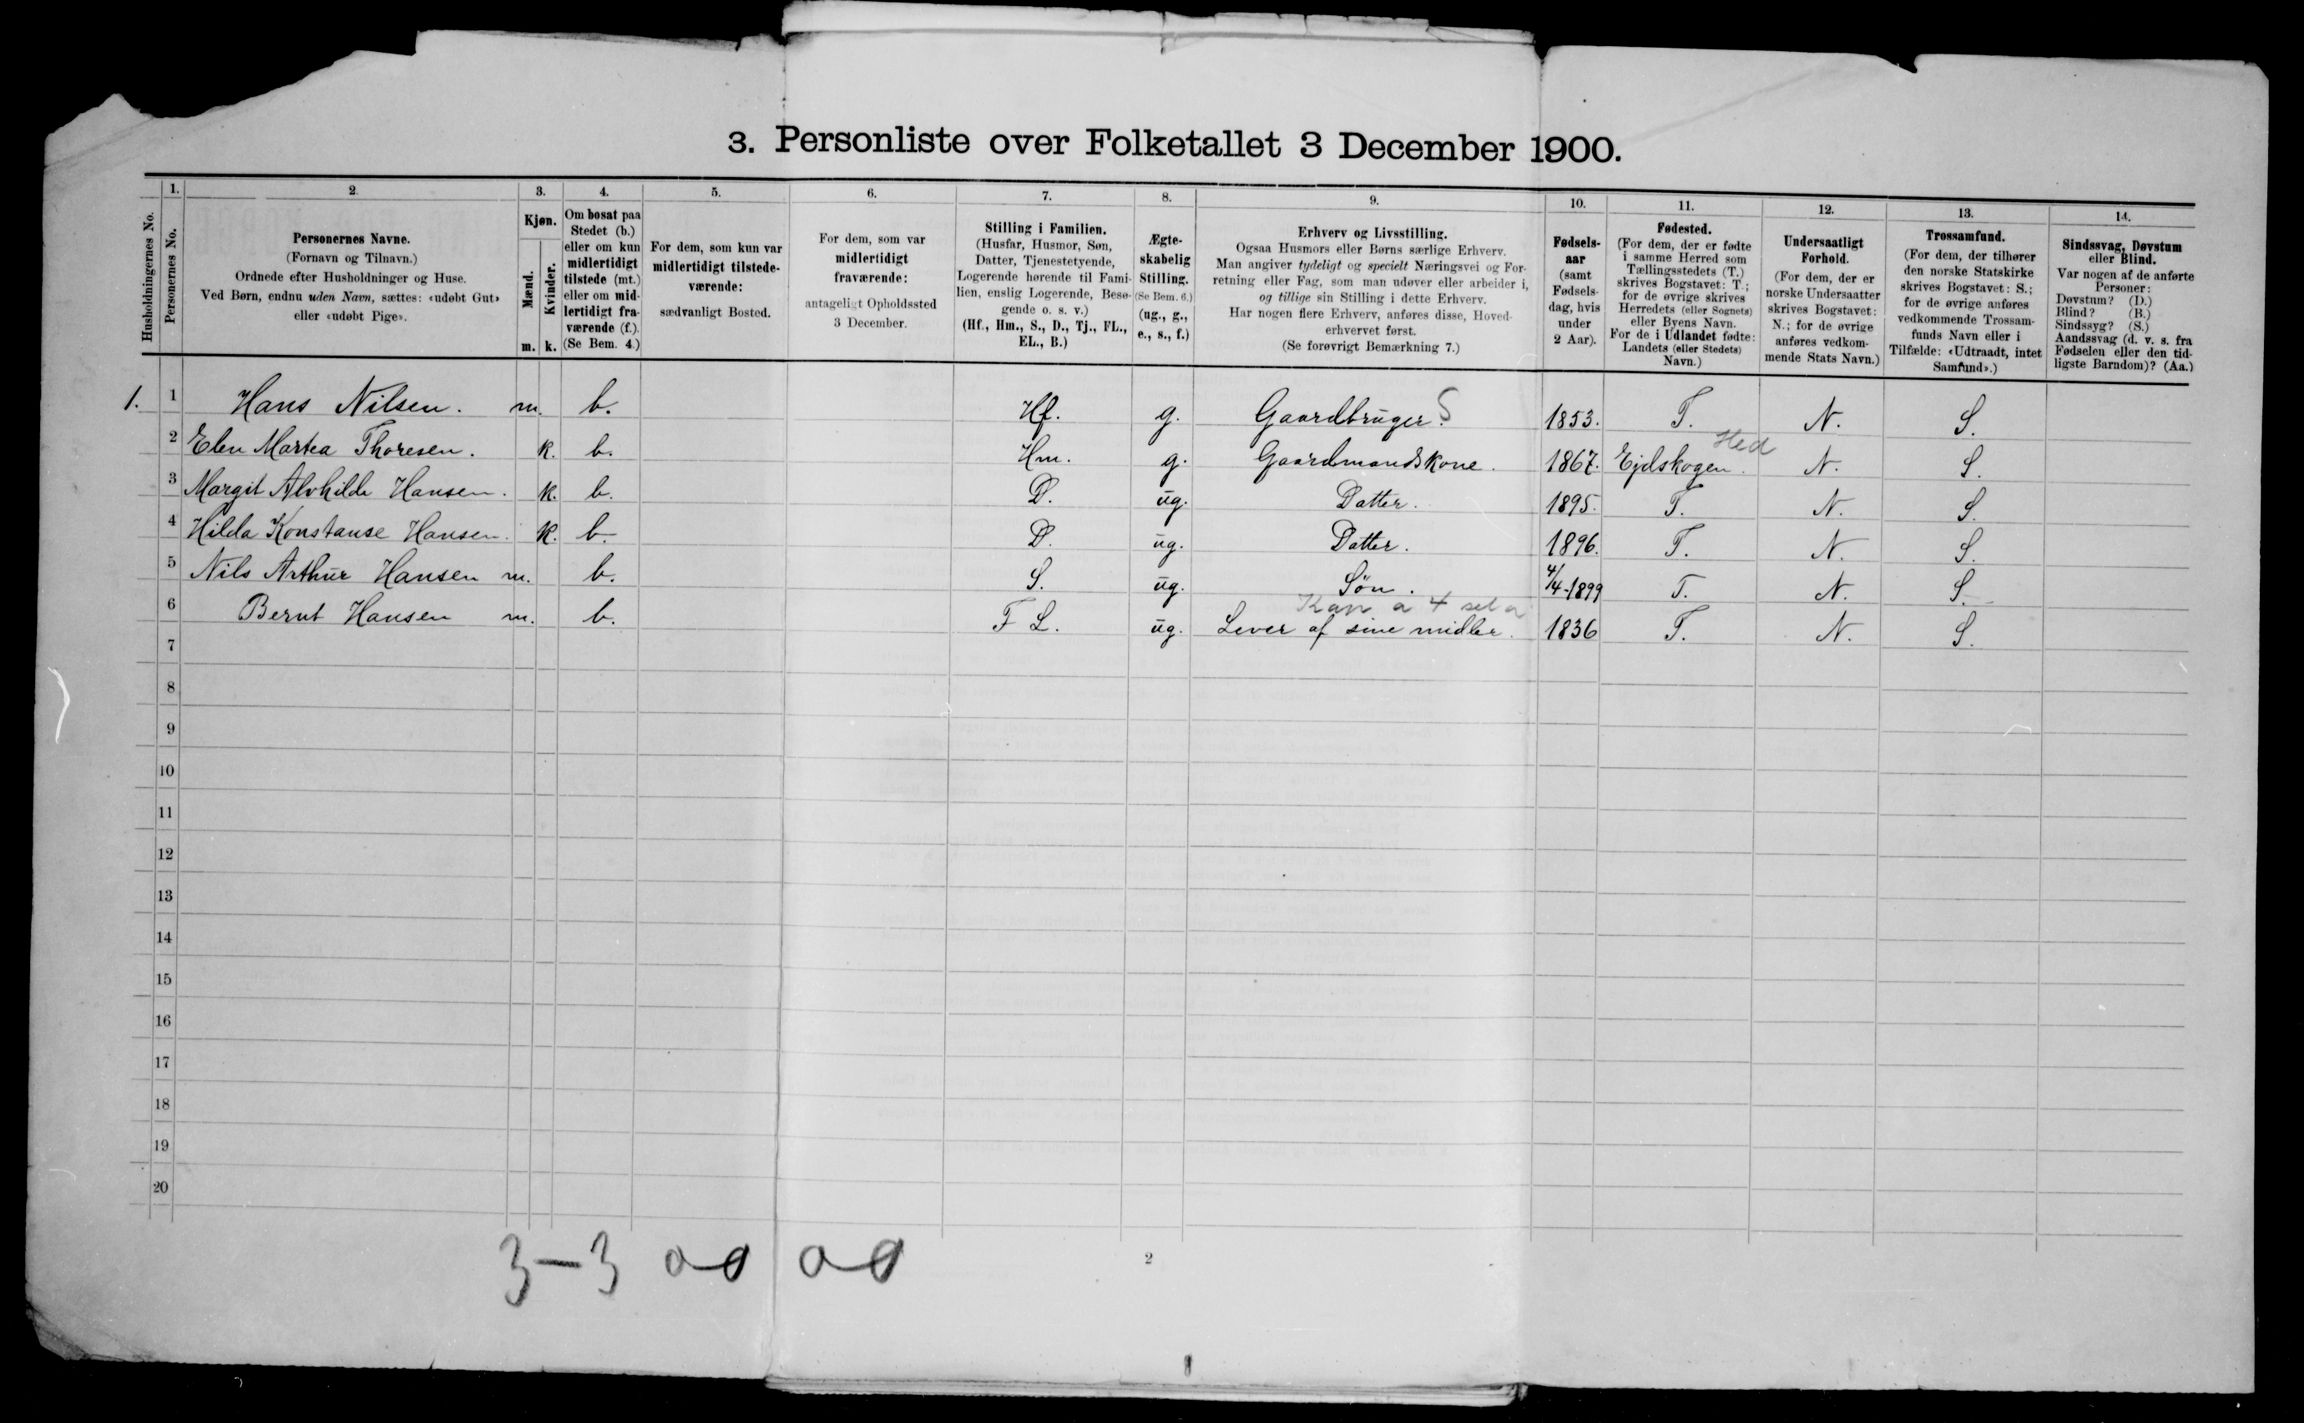 3. Personliste over Folketallet 3 December 1900.
Husholdningernes No.
1.
Personernes No.
2.
Personernes Navne.
(Fornavn og Tilnavn.)
Ordnede efter Husholdninger og Huse.
Ved Børn, endnu uden Navn, sættes: «udøbt Gut»
eller «udøbt Pige».
3.
Kjøn.
Mænd.
Kvinder.
m. k.
4.
Om bosat paa
Stedet (b.)
eller om kun
midlertidigt
tilstede (mt.)
eller om mid-
lertidigt fra-
værende (f.).
(Se Bem. 4.)
5.
For dem, som kun var
midlertidigt tilstede-
værende:
sædvanligt Bosted.
6.
For dem, som var
midlertidigt
fraværende:
antageligt Opholdssted
3 December.
7.
Stilling i Familien.
(Husfar, Husmor, Søn,
Datter, Tjenestetyende,
Logerende hørende til Fami-
lien, enslig Logerende, Besø-
gende o. s. v.)
(Hf., Hm., S., D., Tj., FL.,
EL., B.)
8.
Ægte-
skabelig
Stilling.
(Se Bem. 6.)
(ug., g.,
e., s., f.)
9.
Erhverv og Livsstilling.
Ogsaa Husmors eller Børns særlige Erhverv.
Man angiver tydeligt og specielt Næringsvei og For-
retning eller Fag, som man udøver eller arbeider i,
og tillige sin Stilling i dette Erhverv.
Har nogen flere Erhverv, anføres disse, Hoved-
erhvervet først.
(Se forøvrigt Bemærkning 7.)
10.
Fødsels-
aar
(samt
Fødsels-
dag, hvis
under
2 Aar).
11.
Fødested.
(For dem, der er fødte
i samme Herred som
Tællingsstedets (T.)
skrives Bogstavet: T.;
for de øvrige skrives
Herredets (eller Sognets)
eller Byens Navn.
For de i Udlandet fødte:
Landets (eller Stedets)
Navn.)
12.
Undersaatligt
Forhold.
(For dem, der er
norske Undersaatter
skrives Bogstavet:
N.; for de øvrige
anføres vedkom-
mende Stats Navn.)
13.
Trossamfund.
(For dem, der tilhører
den norske Statskirke
skrives Bogstavet: S.;
for de øvrige anføres
vedkommende Trossam-
funds Navn eller i
Tilfælde: «Udtraadt, intet
Samfund».)
14.
Sindssvag, Døvstum
eller Blind.
Var nogen af de anførte
Personer:
Døvstum? (D.)
Blind? (B.)
Sindssyg? (S.)
Aandssvag (d. v. s. fra
Fødselen eller den tid-
ligste Barndom)? (Aa.)
1. 1 Hans Nilsen. m. b. Hf. g. Gaardbruger. S 1853. T. N. S.
Hed
2 Elen Martea Thoresen. k. b. Hm. g. Gaardmandskone. 1867. Ejdskogen. N. S.
3 Margit Alvhilde Hansen. k. b. D. ug. Datter. 1895. T. N. S.
4 Hilda Konstanse Hansen. k. b. D. ug. Datter. 1896. T. N. S.
5 Nils Arthur Hansen m. b. S. ug. Søn. 4/4-1899 T. N. S.
6 Bernt Hansen m. b. F L. ug. Lever af sine midler. 1836 T. N. S.
7
8
9
10
11
12
13
14
15
16
17
18
19
20
3-3 0 0 0 0
2